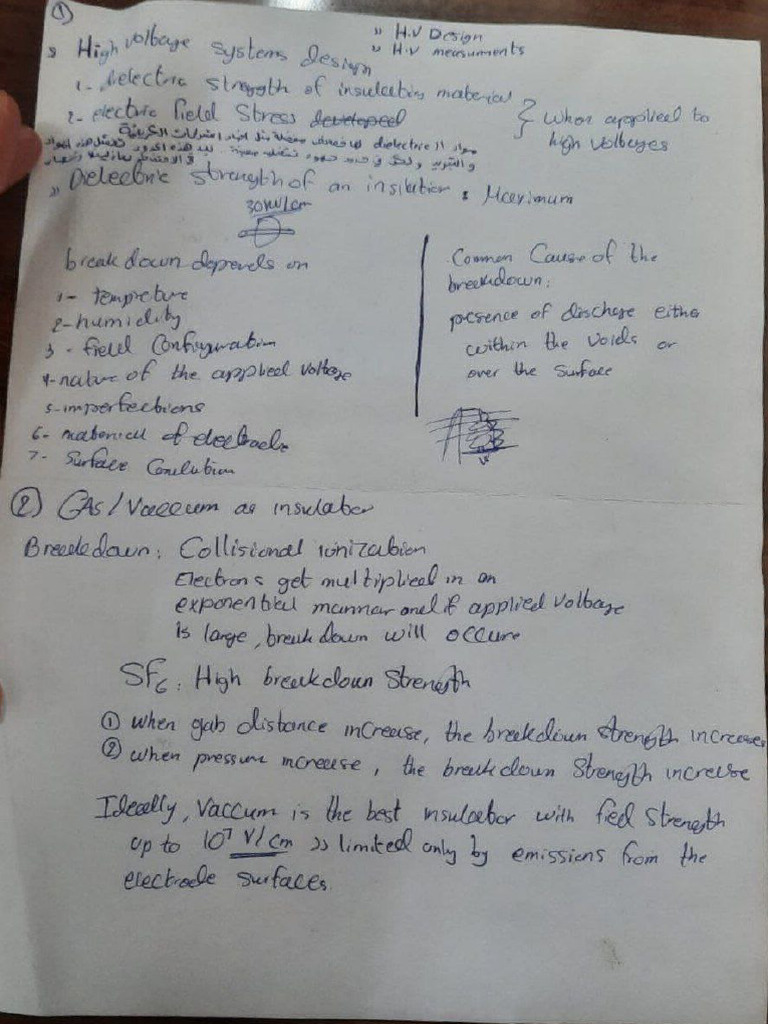 ①
» H.V Design
» H.V measuments
» High voltage systems design
1- delectric strength of insulating material
2- electric field stress developed
} when applied to high voltages
مواد ال dielectric
» Dielectric strength of an insulator : Maximum
30 kV/cm
breakdown depends on
1- tempreture
2- humidity
3- field Configuration
4- nature of the applied voltage
5- imperfections
6- material of electrode
7- Surface Condution
Common Cause of the
breakdown:
presence of dischage either
within the voids or
over the surface
② GAs/Vaccum as insulator
Breakdown: Collisional ionization
Electrons get multiplied in an
exponential mannar and if applied voltage
is large, breakdown will occure
SF6: High breakdown strength
① when gab distance increase, the breakdown strength increases
② when pressure increase, the breakdown strength increase
Ideally, vaccum is the best insulator with field strength
up to 10⁷ V/cm » limited only by emissions from the
electrode surfaces.